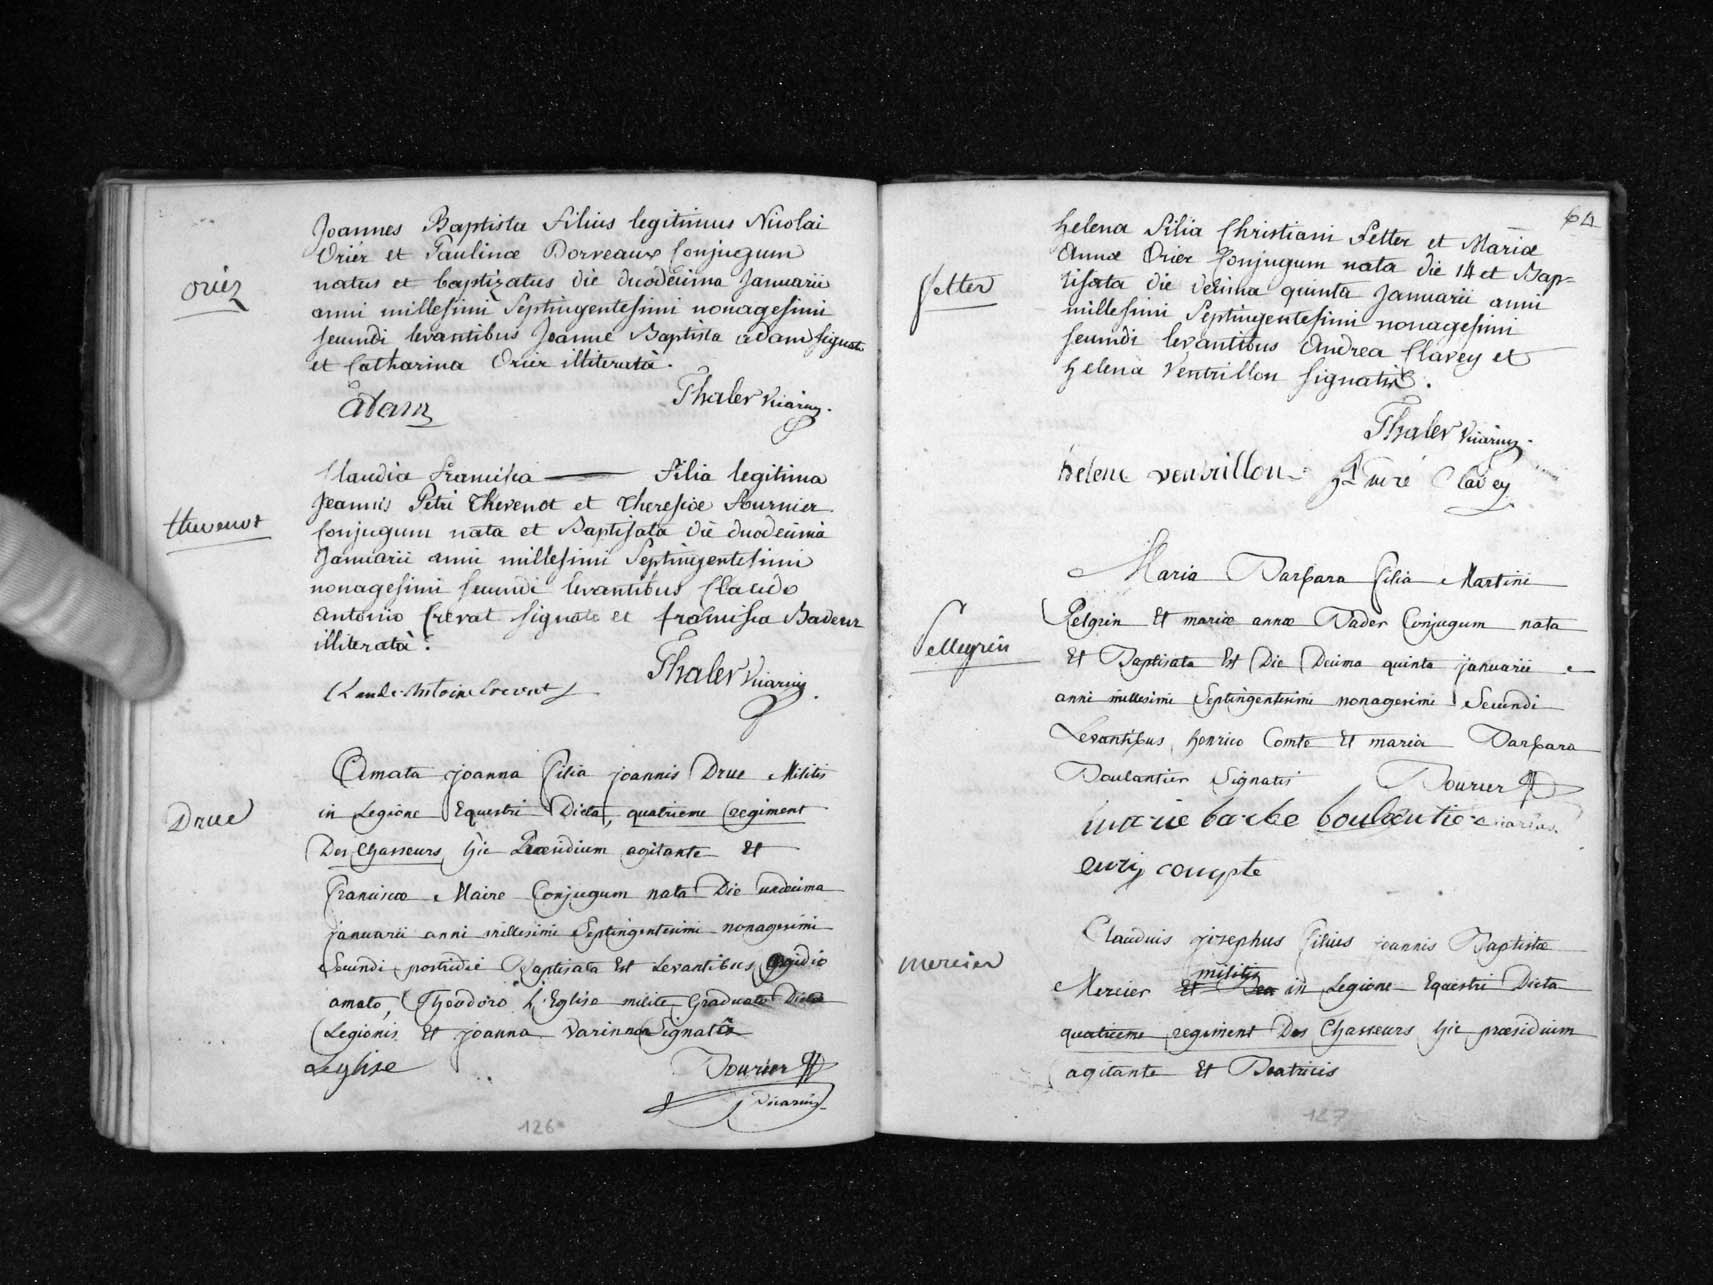 oriez
Joannes Baptista Filius legitimus Nicolai
Orier et Paulinæ Dorveaux Conjugum
natus et baptizatus die duodecima Januarii
anni millesimi Septingentesimi nonagesimi
secundi levantibus Joanne Baptista adam signato
et Catharina Orier illiterata.
adam
Thaler vicarius.
thevenot
Claudia Francisca — Filia legitima
Joannis Petri Thevenot et Theresiæ Fournier
Conjugum nata et Baptisata die duodecima
Januarii anni millesimi Septingentesimi
nonagesimi secundi levantibus Claudio
Antonio Crevat signato et francisca Badeur
illiterata.
Claude Antoine Crevat
Thaler vicarius.
Drue
Amata joanna filia joannis Drue Militis
in Legione Equestri Dicta, quatrieme regiment
Des Chasseurs, hic Præsidium agitante Et
franciscæ Maire Conjugum nata Die undecima
januarii anni millesimi Septingentesimi nonagesimi
Secundi postridie Baptisata Est Levantibus Egidio
amato, Theodoro L'Eglise milite Graduato Dictæ
Legionis Et joanna Varinna Signatis
Leglise
Bourier
Vicarius
126
64
fetter
helena Filia Christiani Fetter et Mariæ
Annæ Orier Conjugum nata die 14 et Bap-
tisata die decima quinta Januarii anni
millesimi Septingentesimi nonagesimi
secundi levantibus Andrea Clavey et
helena Ventrillon signatis.
Thaler vicarius.
helene ventrillon
Clavey
Pellegrin
Maria Barbara filia Martini
Pelgrin Et mariæ annæ Bader Conjugum nata
Et Baptisata Est Die Decima quinta januarii
anni millesimi Septingentesimi nonagesimi Secundi
Levantibus, henrico Comte Et maria Barbara
Boulantier Signatis Bourier
marie barbe boulentier vicarius.
anrij compte
mercier
Claudius josephus filius joannis Baptistæ
Mercier militis in Legione Equestri Dicta
quatrieme regiment Des Chasseurs hic præsidium
agitante Et Beatricis
127